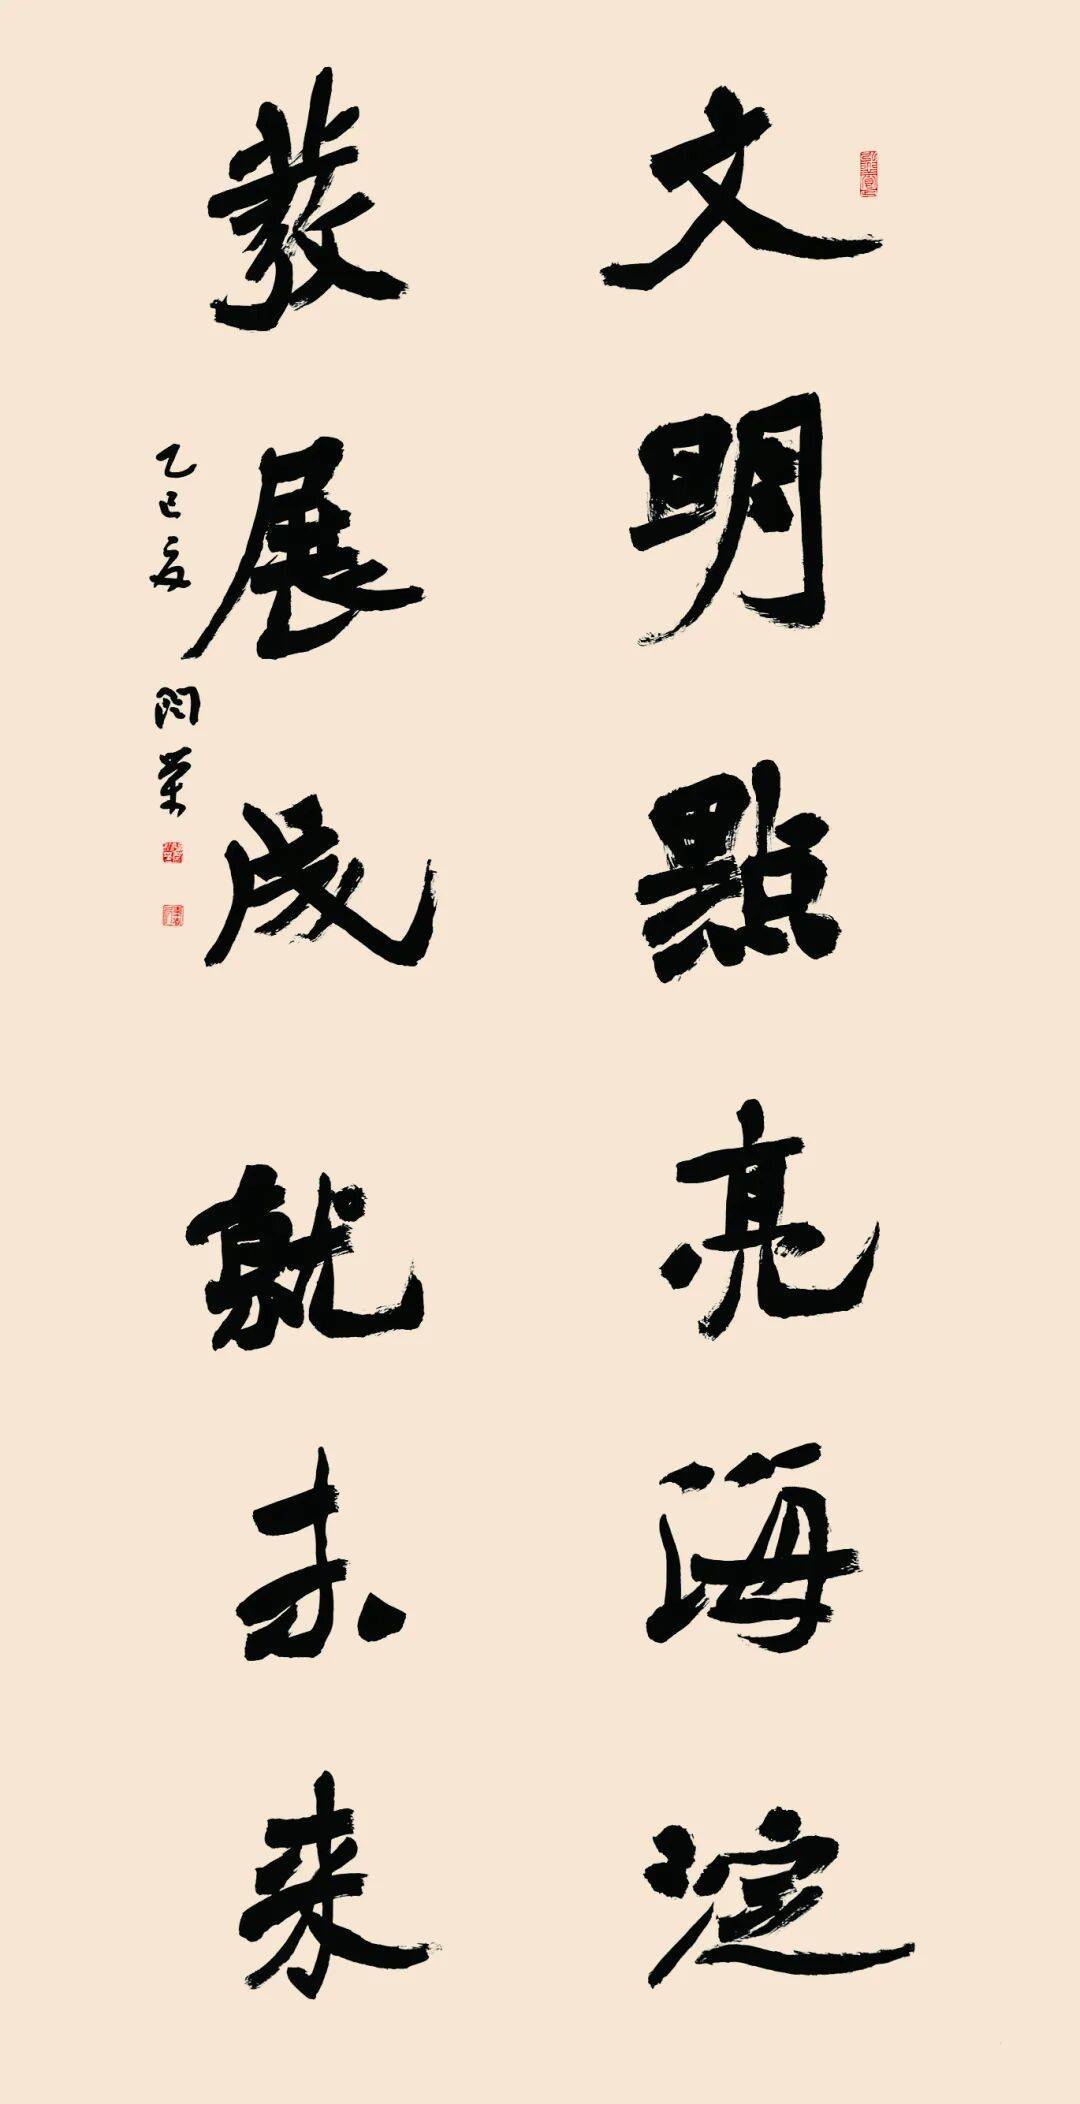 文明點亮海淀
發展成就未来
乙巳夏 閃榮